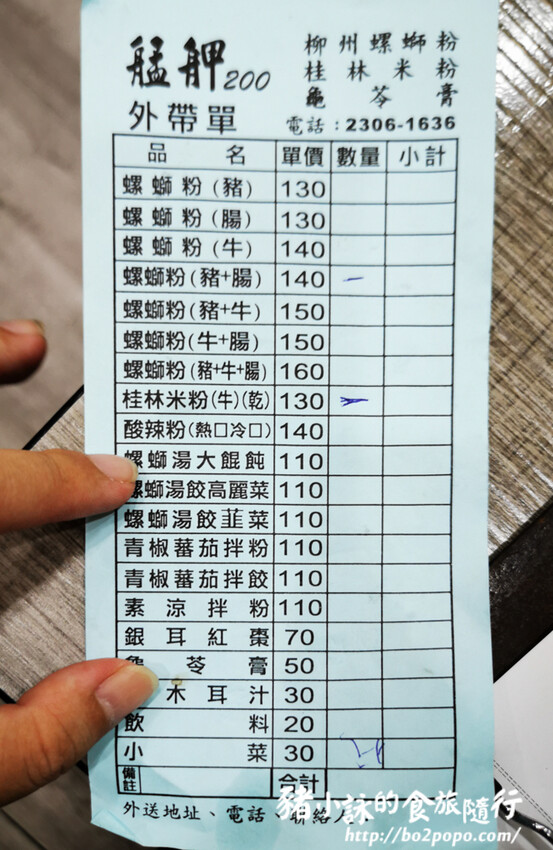 艋舺200
外帶單
柳州螺螄粉
桂林米粉
龜苓膏
電話：2306-1636
品名 單價 數量 小計
螺螄粉(豬) 130
螺螄粉(腸) 130
螺螄粉(牛) 140
螺螄粉(豬+腸) 140 一
螺螄粉(豬+牛) 150
螺螄粉(牛+腸) 150
螺螄粉(豬+牛+腸) 160
桂林米粉(牛)(乾) 130
酸辣粉(熱口冷口) 140
螺螄湯大餛飩 110
螺螄湯餃高麗菜 110
螺螄湯餃韮菜 110
青椒蕃茄拌粉 110
青椒蕃茄拌餃 110
素涼拌粉 110
銀耳紅棗 70
龜苓膏 50
木耳汁 30
飲料 20
小菜 30
備註 合計
外送地址、電話、聯絡人
豬小詠的食旅隨行
http://bo2popo.com/